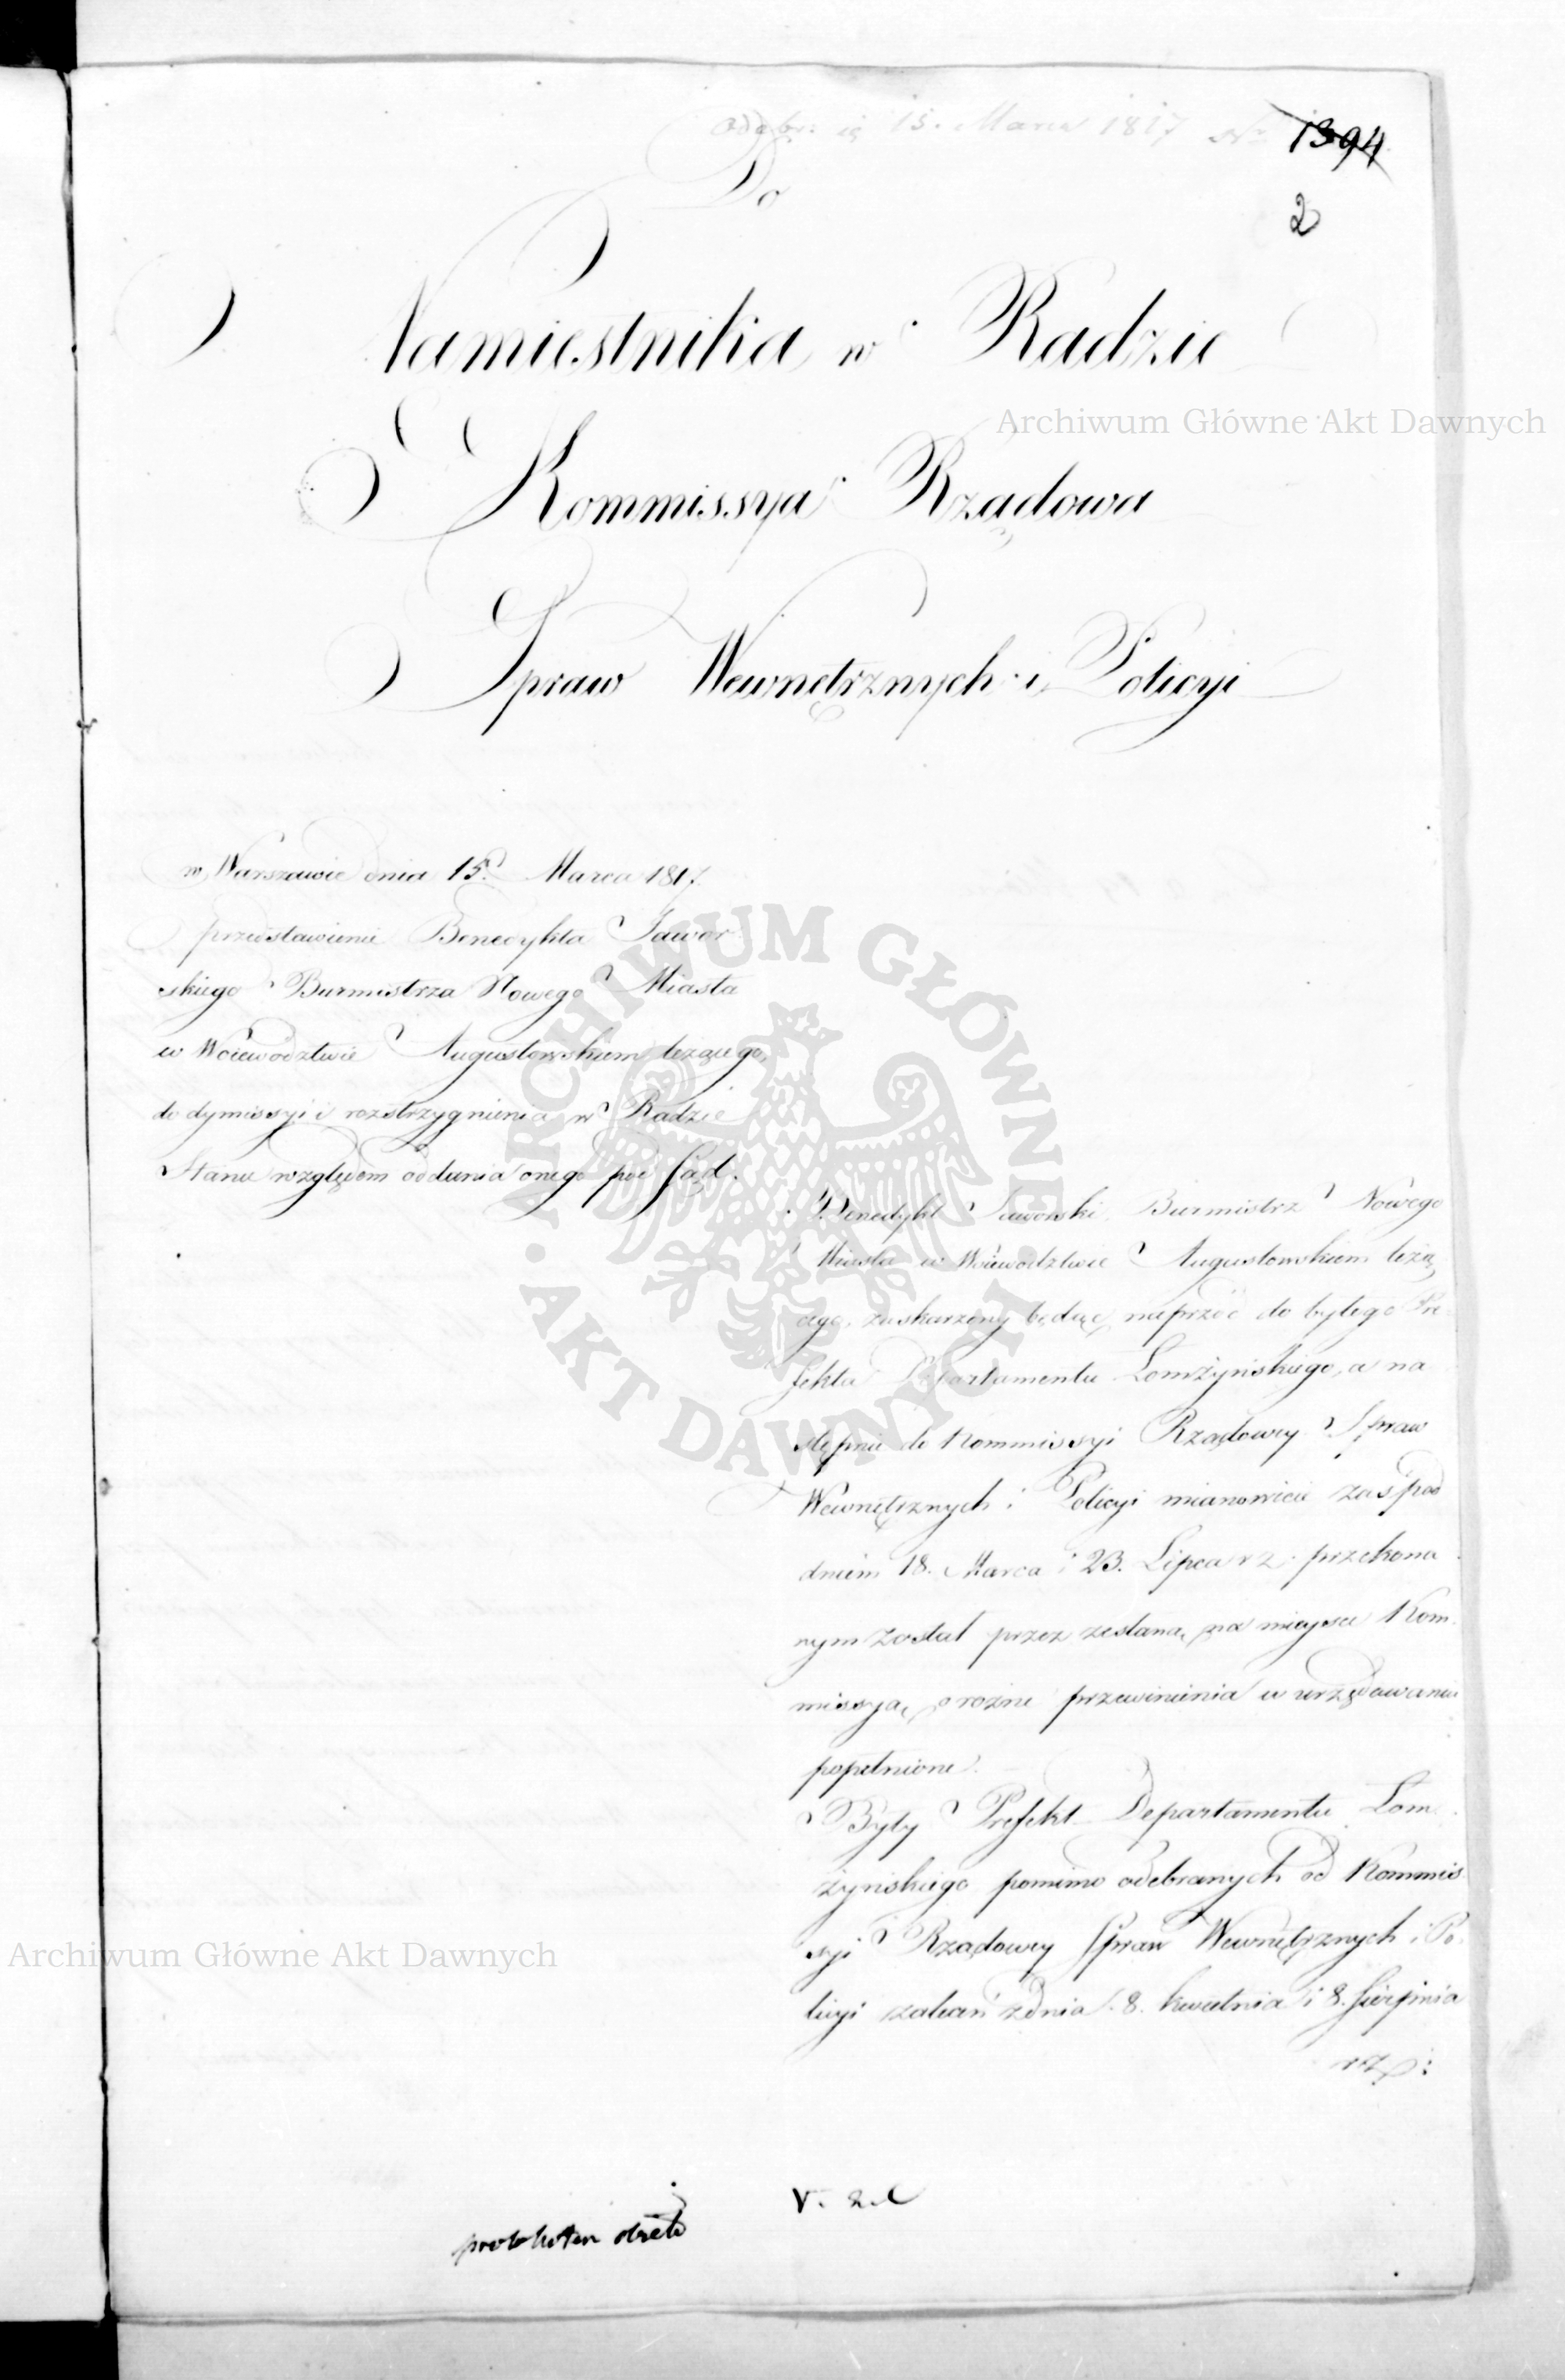 15. Marca 1817 No 1394
Do
2
Namiestnika w Radzie
Archiwum Główne Akt Dawnych
Kommissya Rządowa
Spraw Wewnętrznych i Policyi
w Warszawie dnia 15. Marca 1817.
przedstawienie Benedykta Jawor
skiego Burmistrza Nowego Miasta
w Woiewodztwie Augustowskiem leżącego,
do dymissyi i rozstrzygnienia w Radzie
Stanu względem oddania onego pod Sąd.
ARCHIWUM GŁÓWNE
AKT DAWNYCH
Benedykt Jaworski Burmistrz Nowego
Miasta w Woiewodztwie Augustowskiem leżą
cego, zaskarżony będąc naprzód do byłego Pre
fekta Departamentu Łomżyńskiego, a na
stępnie do Kommissyi Rządowey Spraw
Wewnętrznych i Policyi mianowicie zaś pod
dniem 18. Marca i 23. Lipca r z. przekona
nym został przez zesłaną na mieysce Kom
missyą, o rożne przewinienia w urzędowaniu
popełnione.
Były Prefekt Departamentu Łom
żyńskiego pomimo odebranych od Kommis
syi Rządowey Spraw Wewnętrznych i Po
licyi zaleceń z dnia 8. kwietnia i 8. Sierpnia
r z:
Archiwum Główne Akt Dawnych
V.